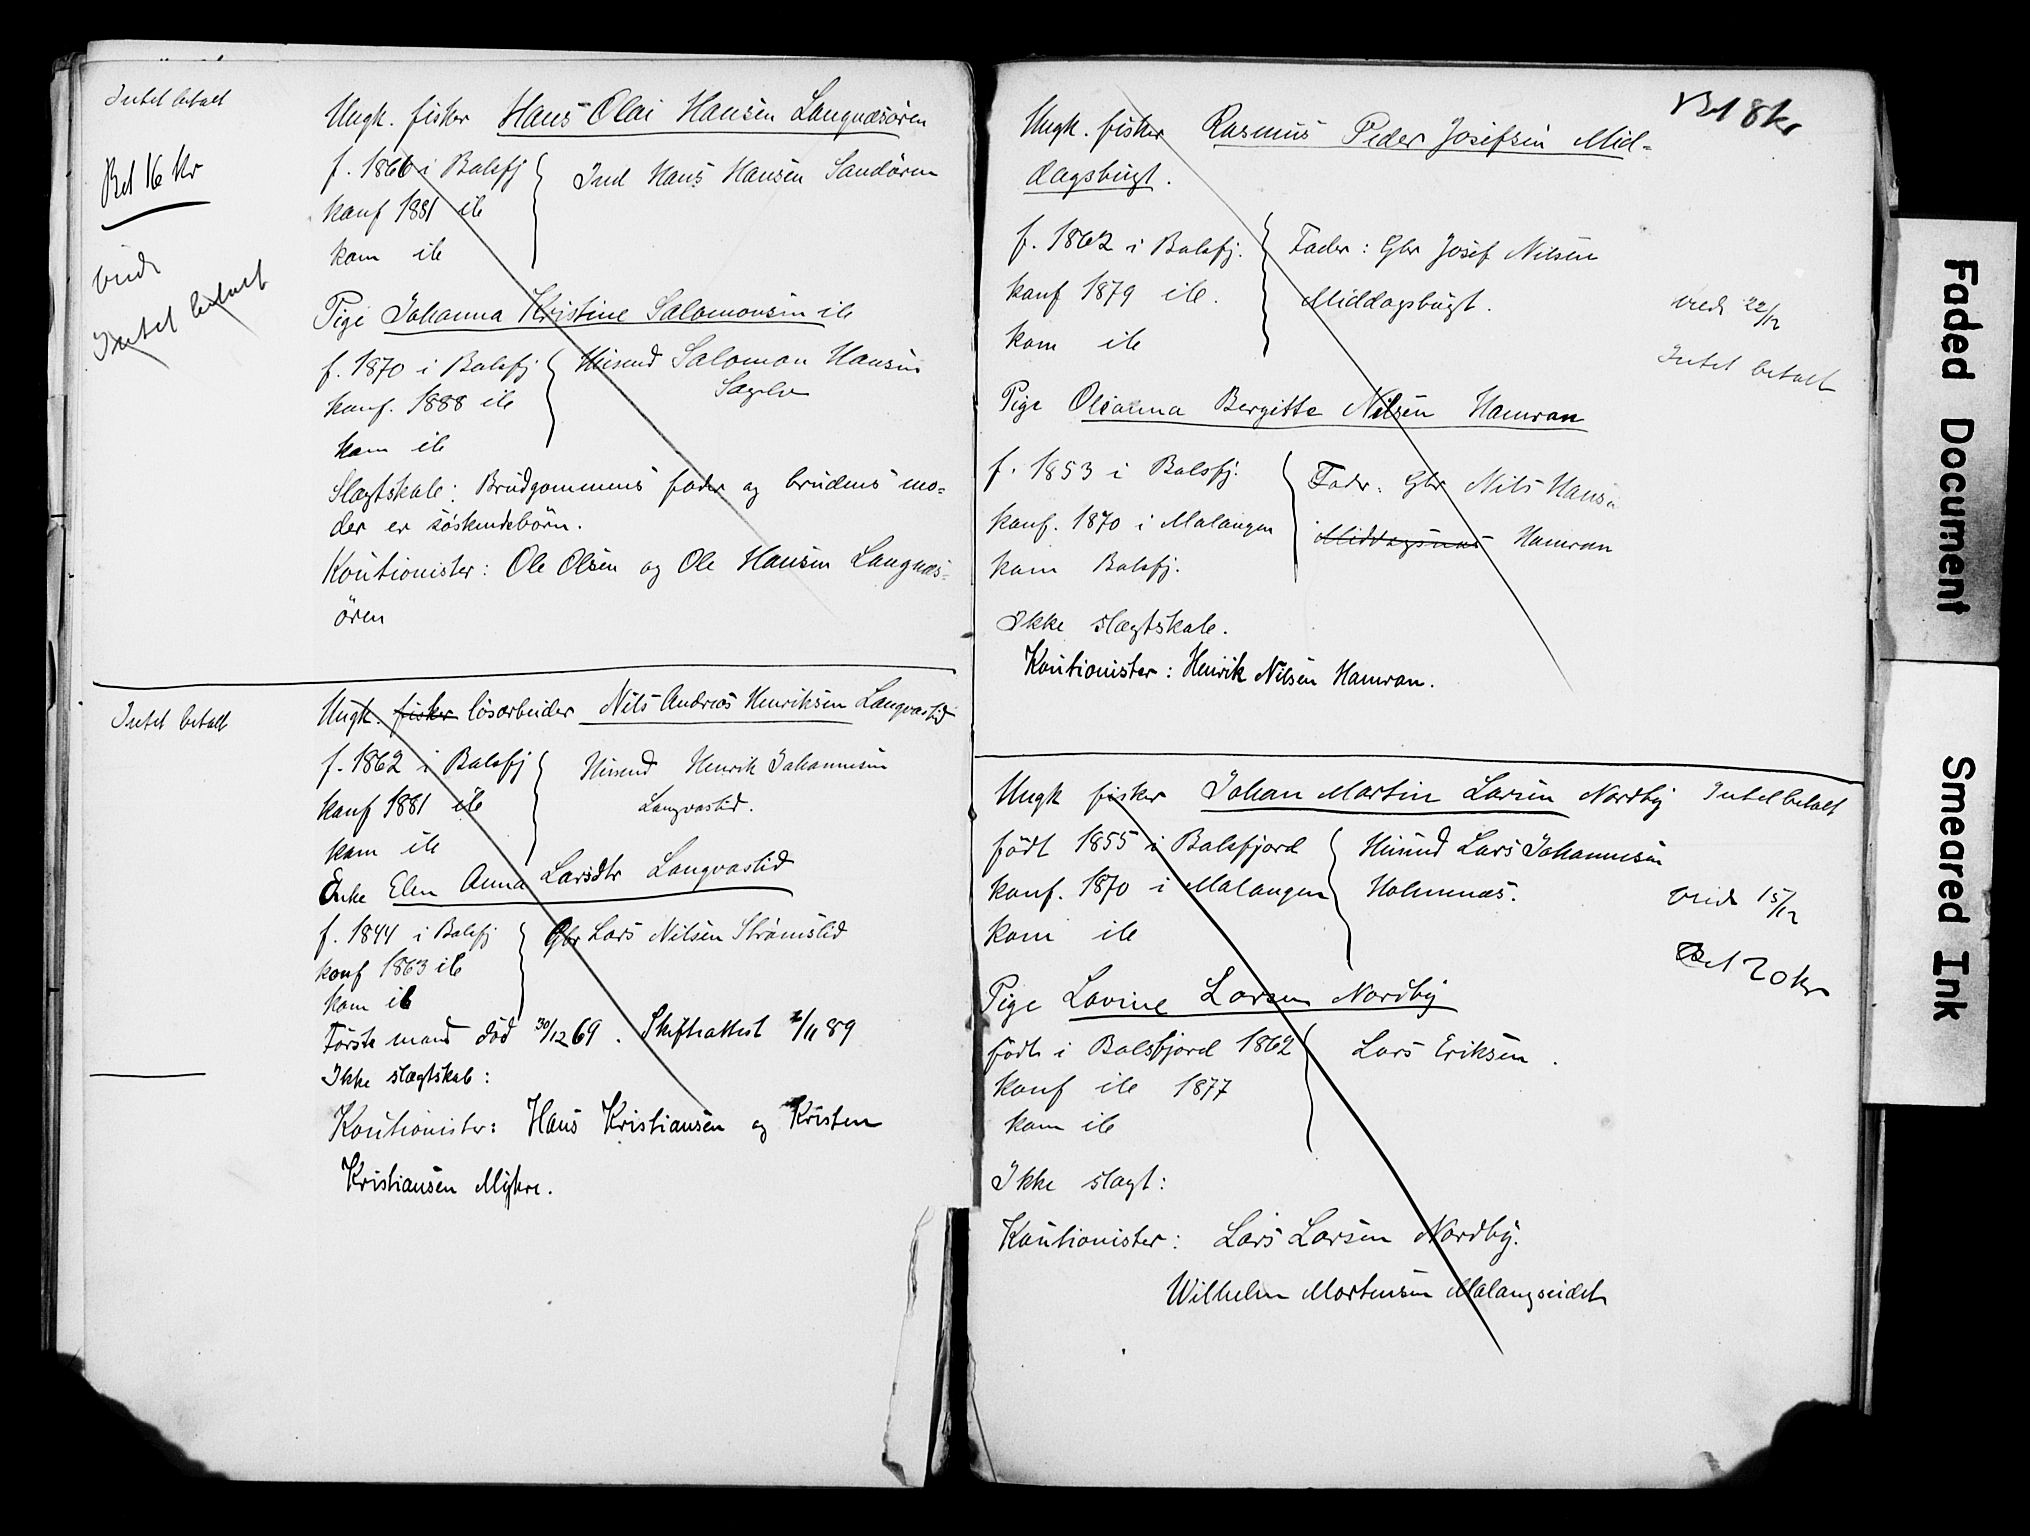 Intet betalt
Bet 16 kr
viede
Intet betalt
Ungk. fisker Hans Olai Hansen Langnæsören
f. 1866 i Balsfj
konf 1881 ib
kom ib
Ind Hans Hansen Sandören
Pige Johanna Kristine Salomonsen ib
f. 1870 i Balsfj
konf. 1888 ib
kom ib
Husmd Salomon Hansen
Sagelv
Slægtskab: Brudgommens fader og brudens mo-
der er söskendebörn.
Kautionister: Ole Olsen og Ole Hansen Langnæs-
ören
Intet betalt
Ungk. fisker lösarbeider Nils Andreas Henriksen Langvaslid
f. 1862 i Balsfj
konf 1881 ib
kom ib
Husmd Henrik Johannesen
Langvaslid.
Enke Elen Anna Larsdtr Langvaslid
f. 1844 i Balsfj
konf 1863 ib
kom ib
Gbr Lars Nilsen Strömslid
Förste mand död 30/12 69. Skifteattest /11 89
Ikke slægtskab:
Kautionister: Hans Kristiansen og Kristen
Kristiansen Myhre.
Bet 8 kr
Ungk. fisker Rasmus Peder Josefsen Mid-
dagsbugt.
f. 1862 i Balsfj.
konf 1879 ib.
kom ib
Fader: Gbr Josef Nilsen
Middagsbugt.
viede 22/12
Intet betalt
Pige Oleanna Bergitte Nilsen Hamran
f. 1853 i Balsfj.
konf. 1870 i Malangen
kom Balsfj.
Fader: Gbr Nils Hansen
Middagsnæs Hamran
Ikke slægtskab.
Kautionister: Henrik Nilsen Hamran.
Ungk fisker Johan Martin Larsen Nordby Intet betalt
födt 1855 i Balsfjord
konf. 1870 i Malangen
kom ib
Husmd Lars Johannesen
Holmenæs.
viede 15/12
Bet 20 kr
Pige Lovine Larsen Nordby
födt i Balsfjord 1862
konf ib 1877
kom ib
Lars Eriksen.
Ikke slægt:
Kautionister: Lars Larsen Nordby.
Wilhelm Mortensen Malangseidet
Faded Document
Smeared Ink